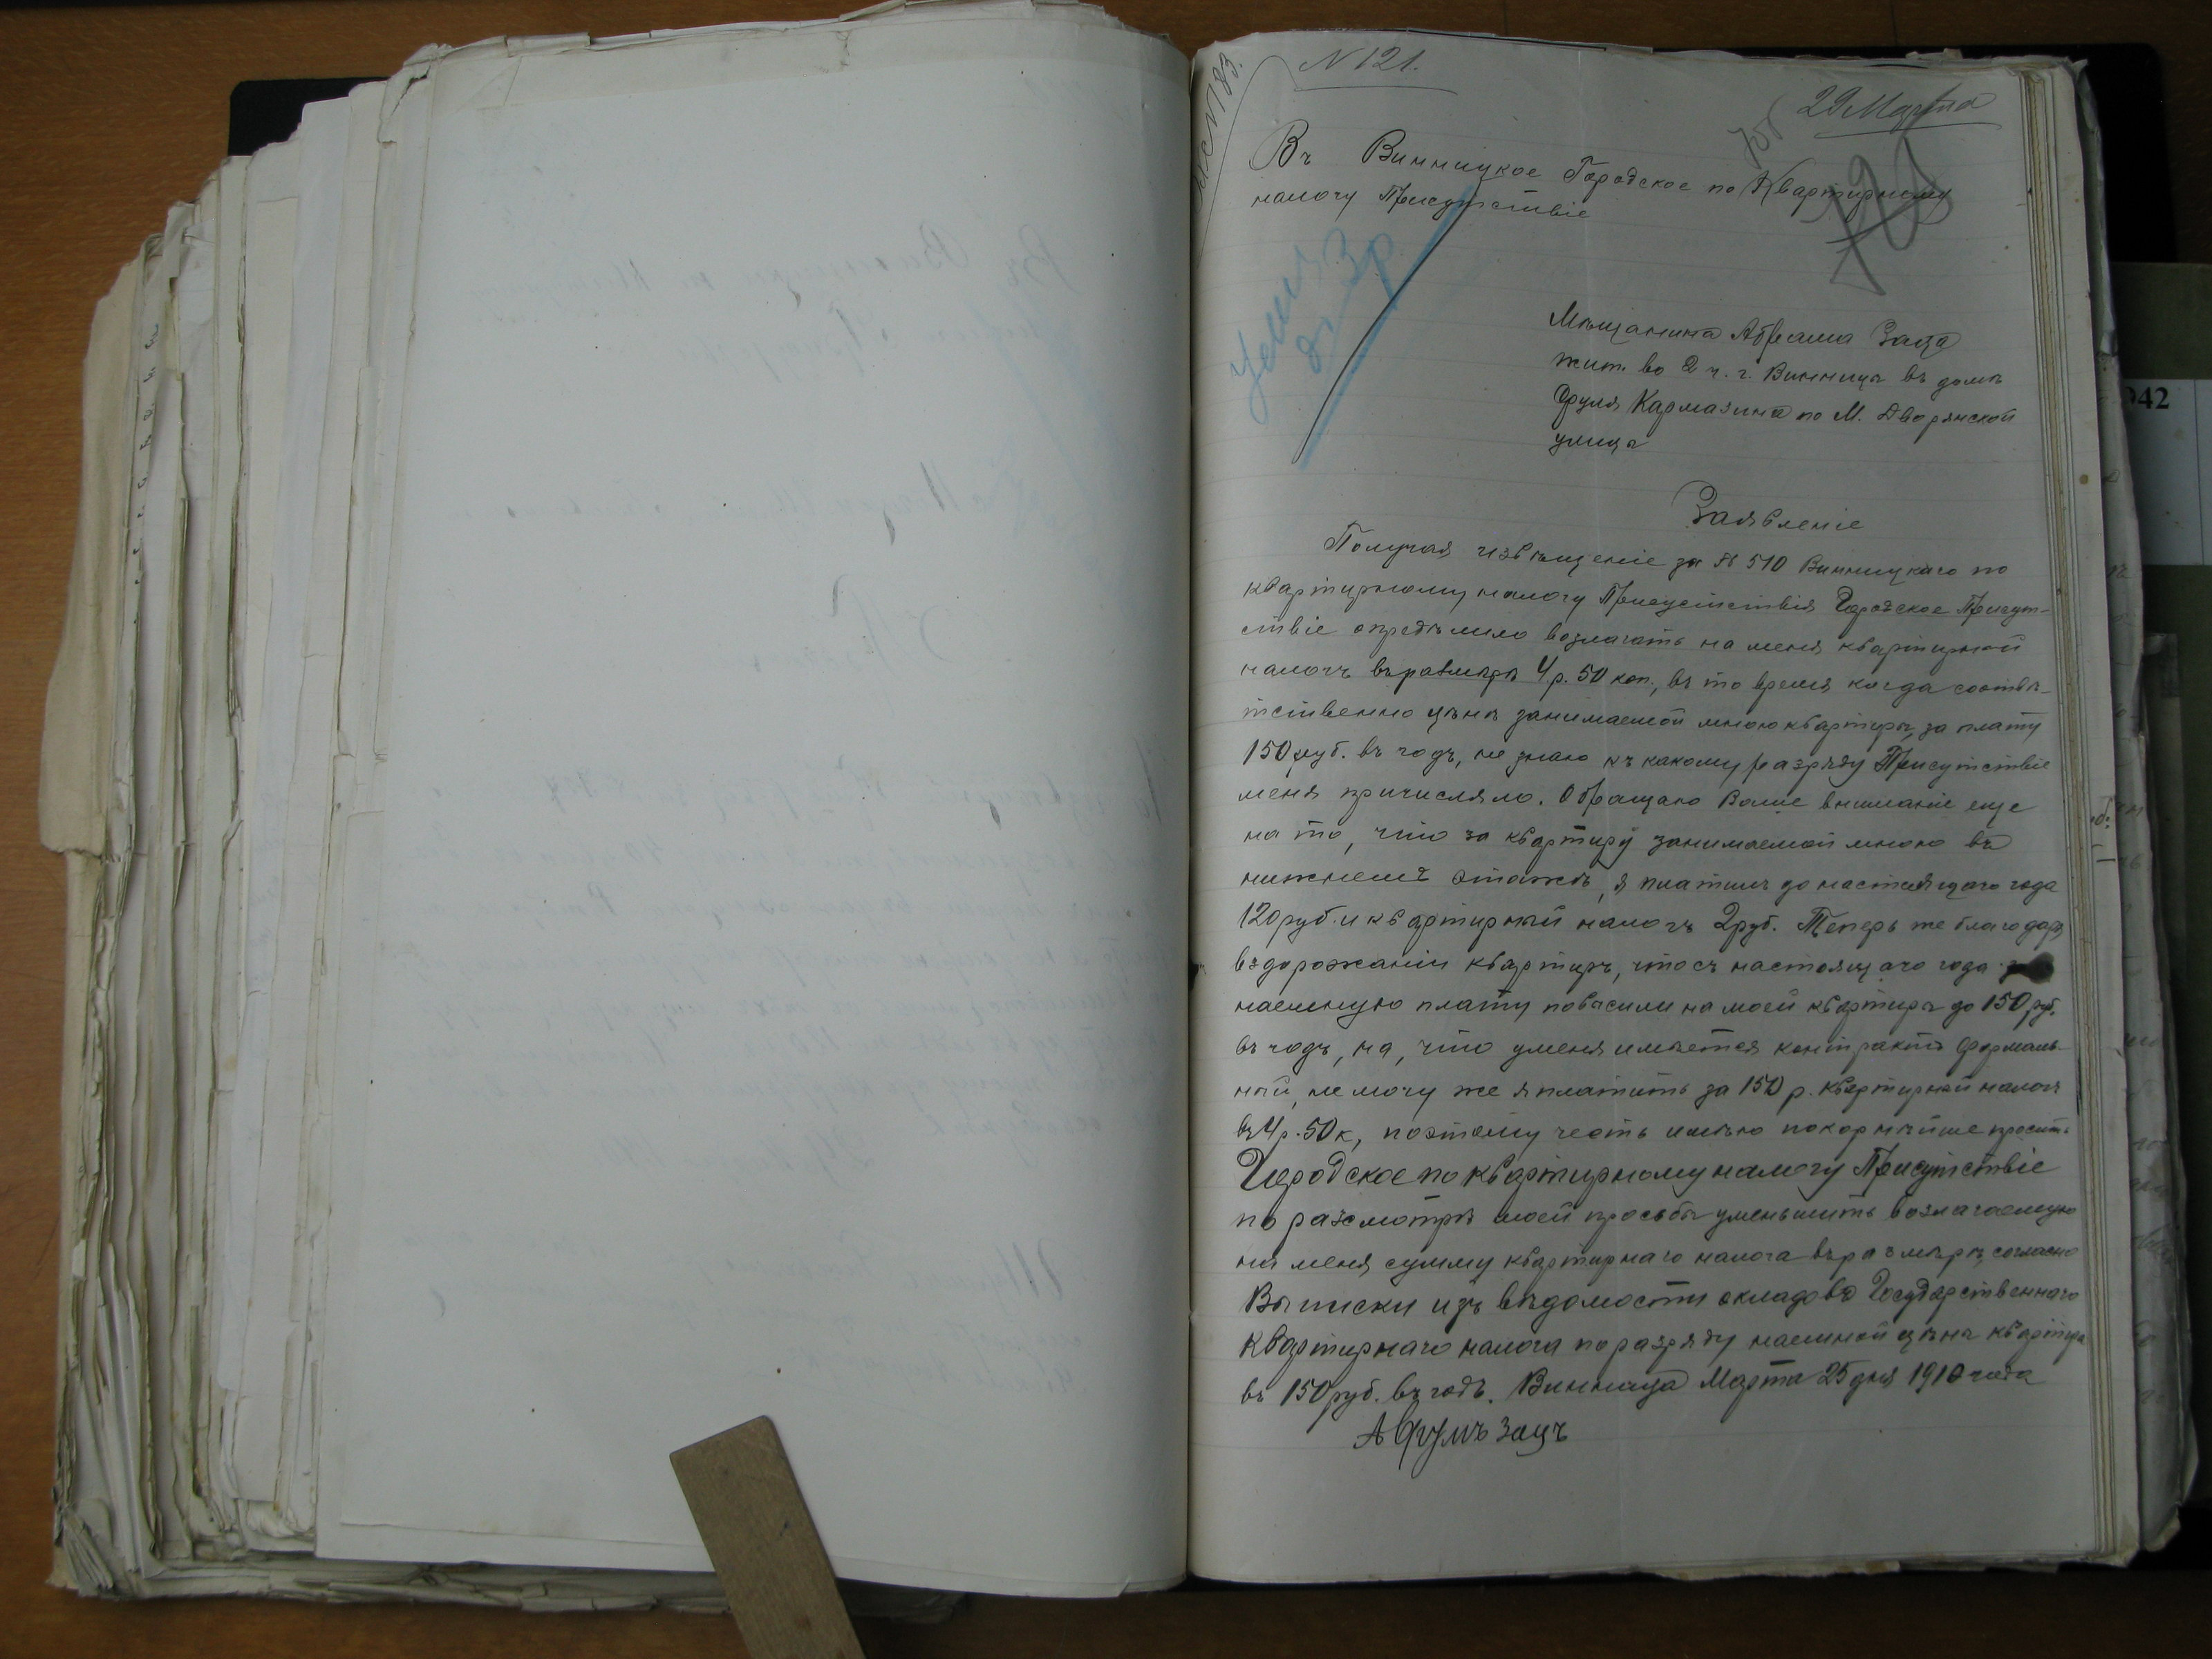 N 121.
22 Марта
№ 183.
Въ Винницкое Городское по Квартирному
налогу Присутствіе
Мѣщанина Абрама Заца
жит. во 2 ч. г. Винницы въ домѣ
Фуля Кармазина по М. Дворянской
улицѣ
Заявленіе
Получая извѣщеніе за № 510 Винницкаго по
квартирному налогу Присутствія Городское Присут-
ствіе опредѣлило возлагать на меня квартирный
налогъ въ размѣрѣ 4 р. 50 коп., въ то время когда соотвѣ-
тственно цѣнѣ занимаемой мною квартиры, за плату
150 руб. въ годъ, не знаю къ какому разряду Присутствіе
меня причисляло. Обращаю Ваше вниманіе еще
на то, что за квартиру занимаемой мною въ
нижнемъ этажѣ, я платилъ до настоящаго года
120 руб. и квартирный налогъ 2 руб. Теперь же благодаря
вздорожаніи квартиръ, что съ настоящаго года
наемную плату повысили на моей квартирѣ до 150 руб.
въ годъ, на, что у меня имѣется контрактъ формаль-
ный, не могу же я платить за 150 р. квартирный налогъ
въ 4 р. 50 к, поэтому честь имѣю покорнѣйше просить
Городское по квартирному налогу Присутствіе
по разсмотрѣ моей просьбы уменьшить возлагаемую
на меня сумму квартирнаго налога въ размѣрѣ, согласно
Выписки изъ вѣдомости окладовъ Государственнаго
квартирнаго налога по разряду наемной цѣны квартиры
въ 150 руб. въ годъ. Винница Марта 25 дня 1910 года
Зацъ
942